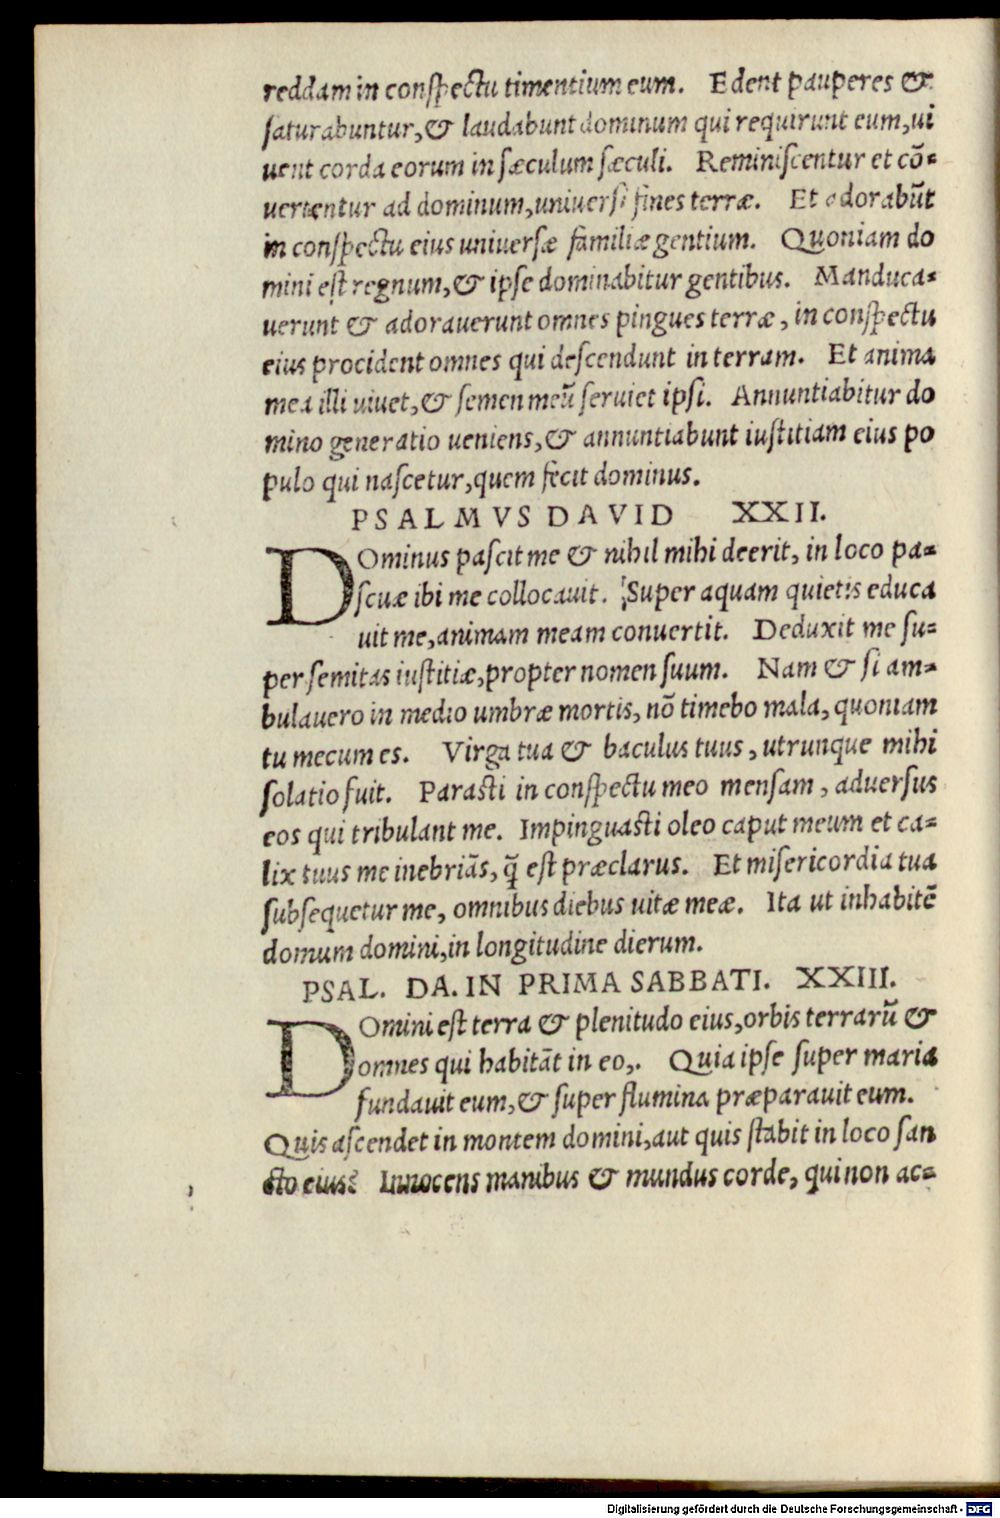 reddam in conſpectu timentium eum. Edent pauperes &
ſaturabuntur,& laudabunt dominum qui requirunt eum,ui
uent corda eorum in ſæculum ſæculi. Reminiſcentur et cō=
uertentur ad dominum,uniuerſi fines terræ. Et adorabūt
in conſpectu eius uniuerſæ familiæ gentium. Quoniam do
mini eſt regnum,& ipſe dominabitur gentibus. Manduca=
uerunt & adorauerunt omnes pingues terræ, in conſpectu
eius procident omnes qui deſcendunt in terram. Et anima
mea illi uiuet,& ſemen meū ſeruiet ipſi. Annuntiabitur do
mino generatio ueniens,& annuntiabunt iuſtitiam eius po
pulo qui naſcetur,quem fecit dominus.
PSALMVS DAVID XXII.
DOminus paſcit me & nihil mihi deerit, in loco pa=
ſcuæ ibi me collocauit. Super aquam quietis educa
uit me,animam meam conuertit. Deduxit me ſu=
per ſemitas iuſtitiæ,propter nomen ſuum. Nam & ſi am=
bulauero in medio umbræ mortis, nō timebo mala, quoniam
tu mecum es. Virga tua & baculus tuus, utrunque mihi
ſolatio fuit. Paraſti in conſpectu meo menſam, aduerſus
eos qui tribulant me. Impinguaſti oleo caput meum et ca=
lix tuus me inebriās, q̄ eſt præclarus. Et miſericordia tua
ſubſequetur me, omnibus diebus uitæ meæ. Ita ut inhabitē
domum domini,in longitudine dierum.
PSAL. DA. IN PRIMA SABBATI. XXIII.
DOmini eſt terra & plenitudo eius,orbis terrarū &
omnes qui habitāt in eo,. Quia ipſe ſuper maria
fundauit eum,& ſuper flumina præparauit eum.
Quis aſcendet in montem domini,aut quis ſtabit in loco ſan
cto eius? Innocens manibus & mundus corde, qui non ac=
Digitalisierung gefördert durch die Deutsche Forschungsgemeinschaft - DFG